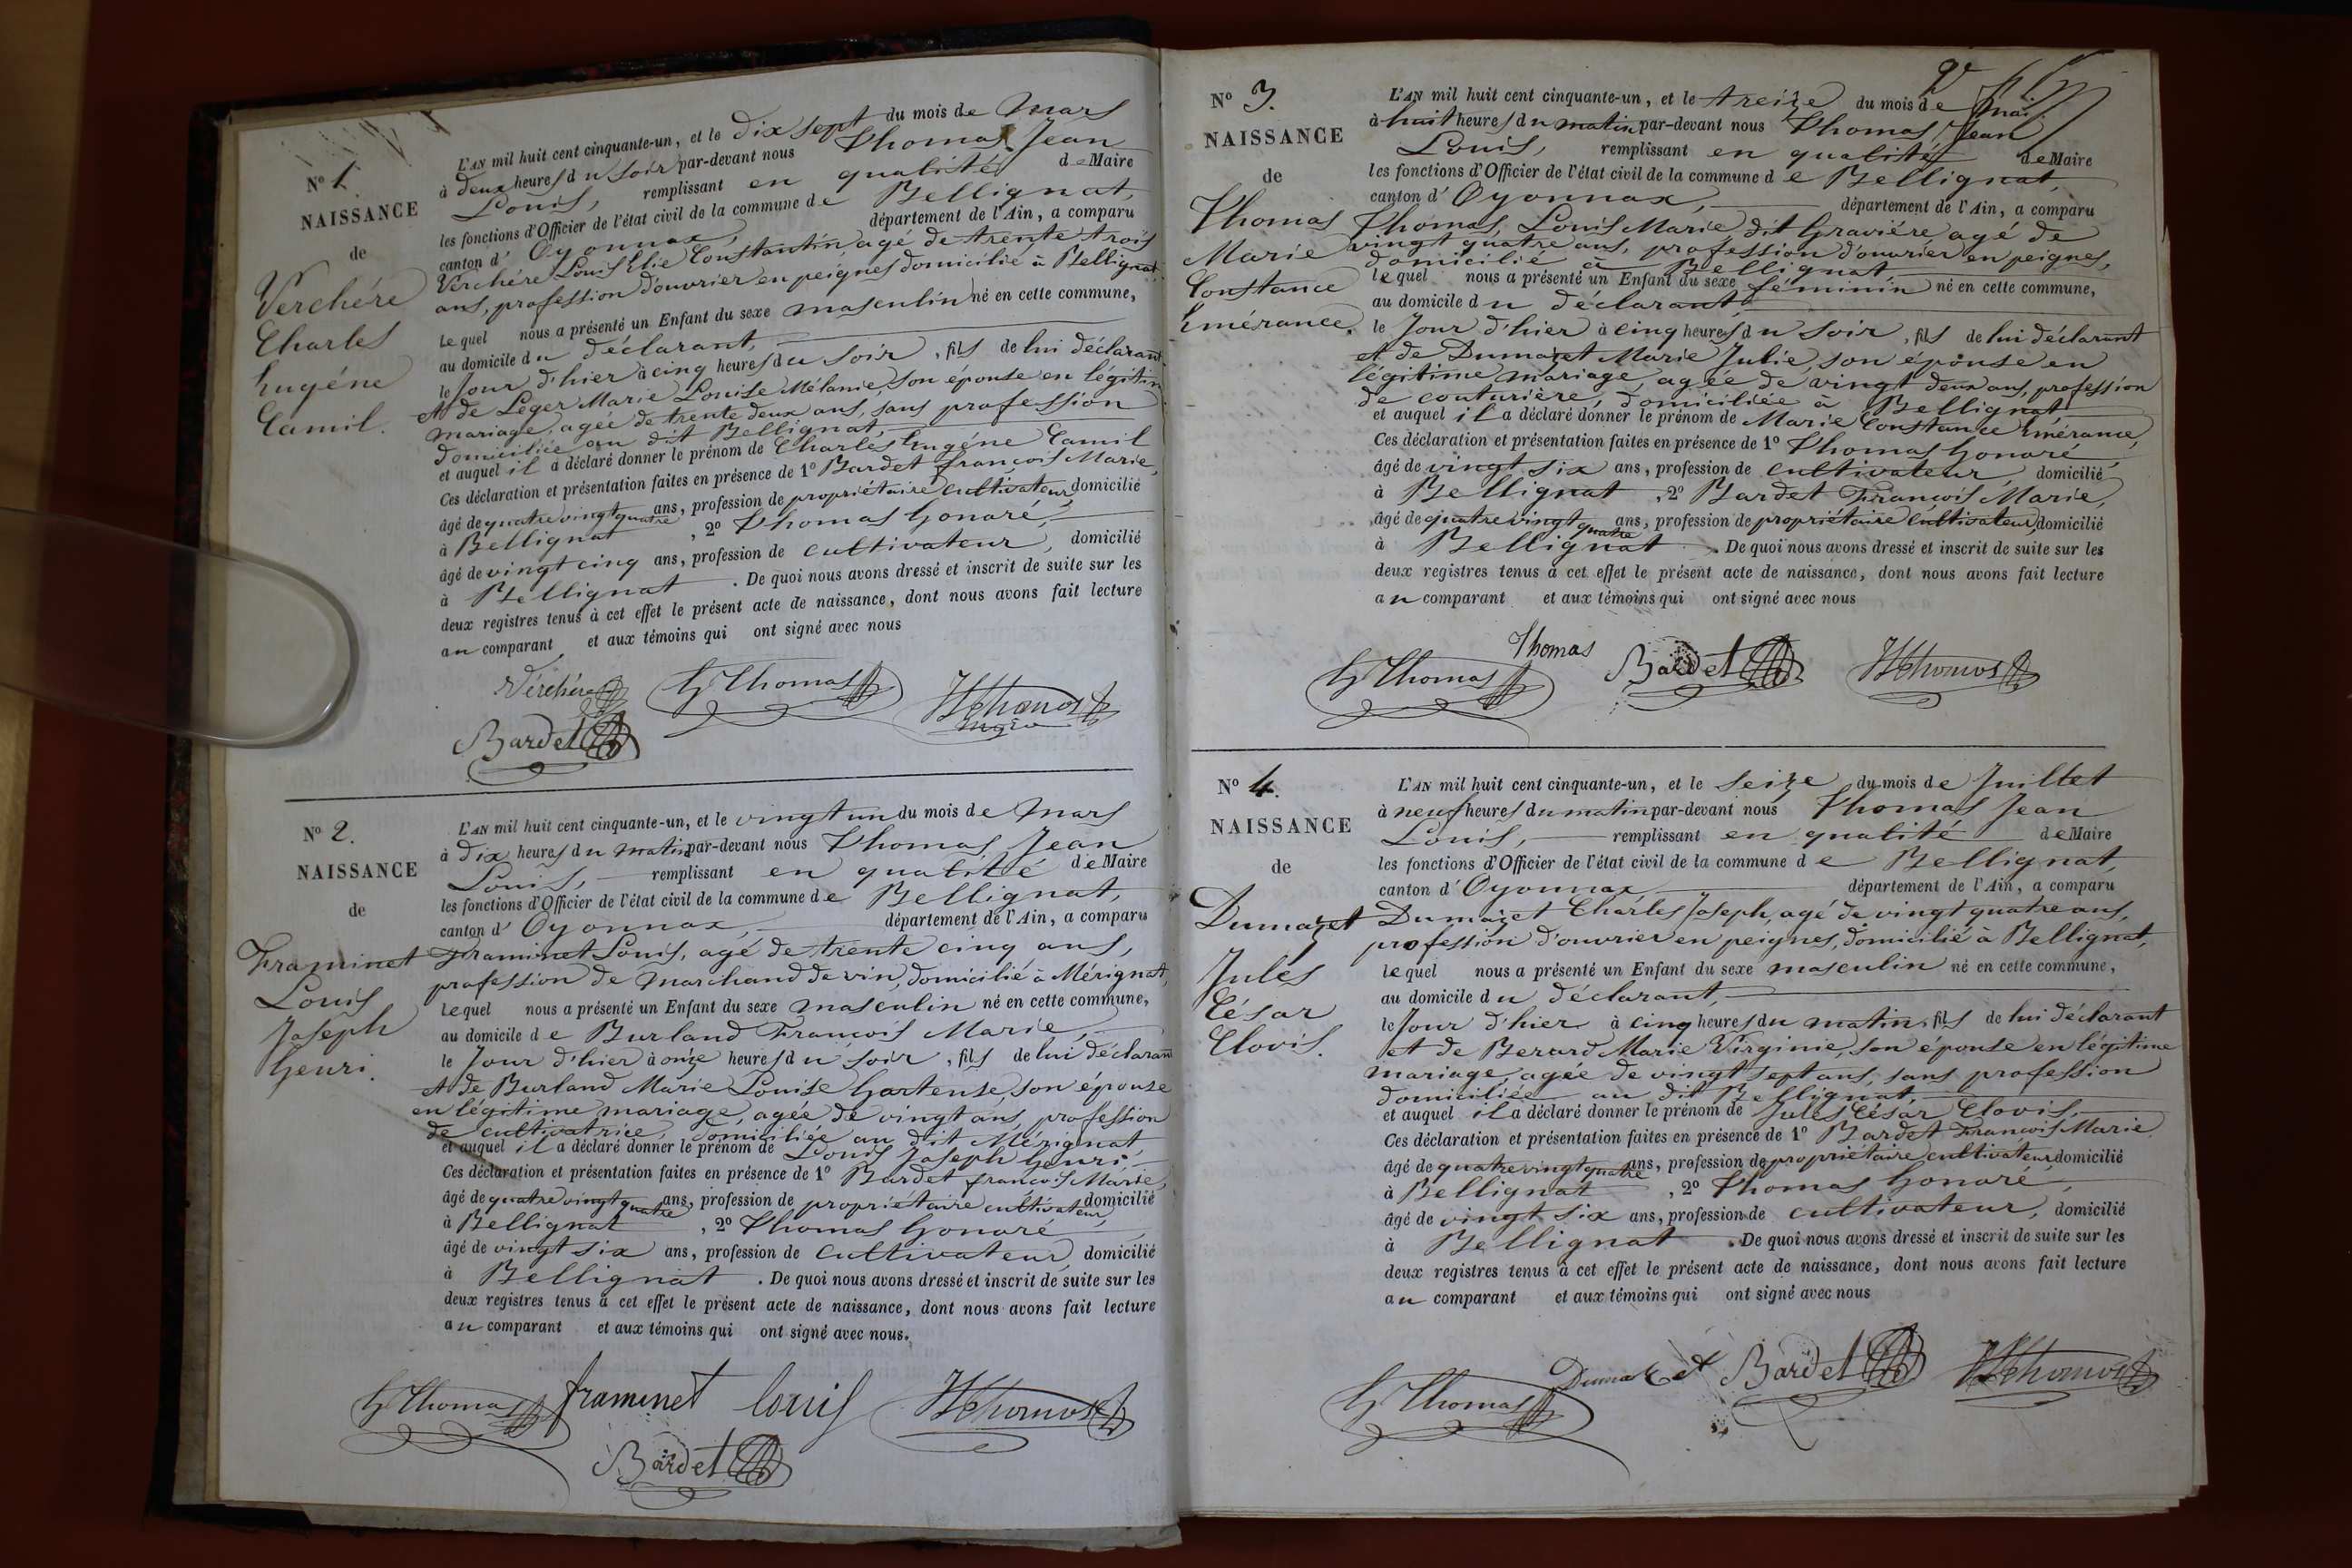 N° 1.
NAISSANCE
de
Verchére
Charles
Eugéne
Camil.
L'AN mil huit cent cinquante-un, et le dix sept du mois de Mars
à deux heures du soir par-devant nous Thomas Jean
Louis, remplissant en qualité de Maire
les fonctions d'Officier de l'état civil de la commune de Bellignat,
canton d' Oyonnax, département de l'Ain, a comparu
Verchére Louis Elie Constantin, agé de trente trois
ans, profession d'ouvrier en peignes domicilié à Bellignat,
lequel nous a présenté un Enfant du sexe masculin né en cette commune,
au domicile du déclarant,
le Jour d'hier à cinq heures du soir, fils de lui déclarant
et de Leger Marie Louise Mélanie, son épouse en légitime
mariage, agée de trente deux ans, sans profession
domiciliée au dit Bellignat,
et auquel il a déclaré donner le prénom de Charles Eugéne Camil
Ces déclaration et présentation faites en présence de 1° Bardet françois Marie,
âgé de quatre vingt quatre ans, profession de propriétaire cultivateur, domicilié
à Bellignat, 2° Thomas Honoré,
âgé de vingt cinq ans, profession de cultivateur, domicilié
à Bellignat. De quoi nous avons dressé et inscrit de suite sur les
deux registres tenus à cet effet le présent acte de naissance, dont nous avons fait lecture
au comparant et aux témoins qui ont signé avec nous
Verchére H Thomas Thomas
Bardet
N° 2.
NAISSANCE
de
Framinet
Louis
Joseph
Henri.
L'AN mil huit cent cinquante-un, et le vingt un du mois de Mars
à dix heures du matin par-devant nous Thomas Jean
Louis, remplissant en qualité de Maire
les fonctions d'Officier de l'état civil de la commune de Bellignat,
canton d' Oyonnax, département de l'Ain, a comparu
Framinet Louis, agé de trente cinq ans,
profession de marchand de vin, domicilié à Mérignat,
lequel nous a présenté un Enfant du sexe masculin né en cette commune,
au domicile de Burland François Marie,
le Jour d'hier à onze heures du soir, fils de lui déclarant
et de Burland Marie Louise Hortense, son épouse
en légitime mariage, agée de vingt ans, profession
de cultivatrice, domiciliée au dit Mérignat,
et auquel il a déclaré donner le prénom de Louis Joseph Henri,
Ces déclaration et présentation faites en présence de 1° Bardet françois Marie,
âgé de quatre vingt quatre ans, profession de propriétaire cultivateur, domicilié
à Bellignat, 2° Thomas Honoré,
âgé de vingt six ans, profession de cultivateur, domicilié
à Bellignat. De quoi nous avons dressé et inscrit de suite sur les
deux registres tenus à cet effet le présent acte de naissance, dont nous avons fait lecture
au comparant et aux témoins qui ont signé avec nous.
H Thomas framinet louis Thomas
Bardet
N° 3.
NAISSANCE
de
Thomas
Marie
Constance
Emérance.
L'AN mil huit cent cinquante-un, et le treize du mois de Mai
à huit heures du matin par-devant nous Thomas Jean
Louis, remplissant en qualité de Maire
les fonctions d'Officier de l'état civil de la commune de Bellignat,
canton d' Oyonnax, département de l'Ain, a comparu
Thomas, Louis Marie dit Graviére agé de
vingt quatre ans, profession d'ouvrier en peignes,
domicilié à Bellignat,
lequel nous a présenté un Enfant du sexe féminin né en cette commune,
au domicile du déclarant,
le Jour d'hier à cinq heures du soir, fils de lui déclarant
et de Dumazet Marie Julie, son épouse en
légitime mariage, agée de vingt deux ans, profession
de couturiére, domiciliée à Bellignat,
et auquel il a déclaré donner le prénom de Marie Constance Emérance,
Ces déclaration et présentation faites en présence de 1° Thomas Honoré
âgé de vingt six ans, profession de cultivateur, domicilié
à Bellignat, 2° Bardet François Marie,
âgé de quatre vingt quatre ans, profession de propriétaire cultivateur, domicilié
à Bellignat. De quoi nous avons dressé et inscrit de suite sur les
deux registres tenus à cet effet le présent acte de naissance, dont nous avons fait lecture
au comparant et aux témoins qui ont signé avec nous
H Thomas Thomas Bardet Thomas
N° 4.
NAISSANCE
de
Dumazet
Jules
César
Clovis.
L'AN mil huit cent cinquante-un, et le seize du mois de Juillet
à neuf heures du matin par-devant nous Thomas Jean
Louis, remplissant en qualité de Maire
les fonctions d'Officier de l'état civil de la commune de Bellignat,
canton d' Oyonnax, département de l'Ain, a comparu
Dumazet Charles Joseph, agé de vingt quatre ans,
profession d'ouvrier en peignes, domicilié à Bellignat,
lequel nous a présenté un Enfant du sexe masculin né en cette commune,
au domicile du déclarant,
le Jour d'hier à cinq heures du matin, fils de lui déclarant
et de Berard Marie Virginie, son épouse en légitime
mariage, agée de vingt sept ans, sans profession
domiciliée au dit Bellignat,
et auquel il a déclaré donner le prénom de Jules César Clovis,
Ces déclaration et présentation faites en présence de 1° Bardet François Marie
âgé de quatre vingt quatre ans, profession de propriétaire cultivateur domicilié
à Bellignat, 2° Thomas Honoré,
âgé de vingt six ans, profession de cultivateur, domicilié
à Bellignat. De quoi nous avons dressé et inscrit de suite sur les
deux registres tenus à cet effet le présent acte de naissance, dont nous avons fait lecture
au comparant et aux témoins qui ont signé avec nous
H Thomas Dumazet Bardet Thomas